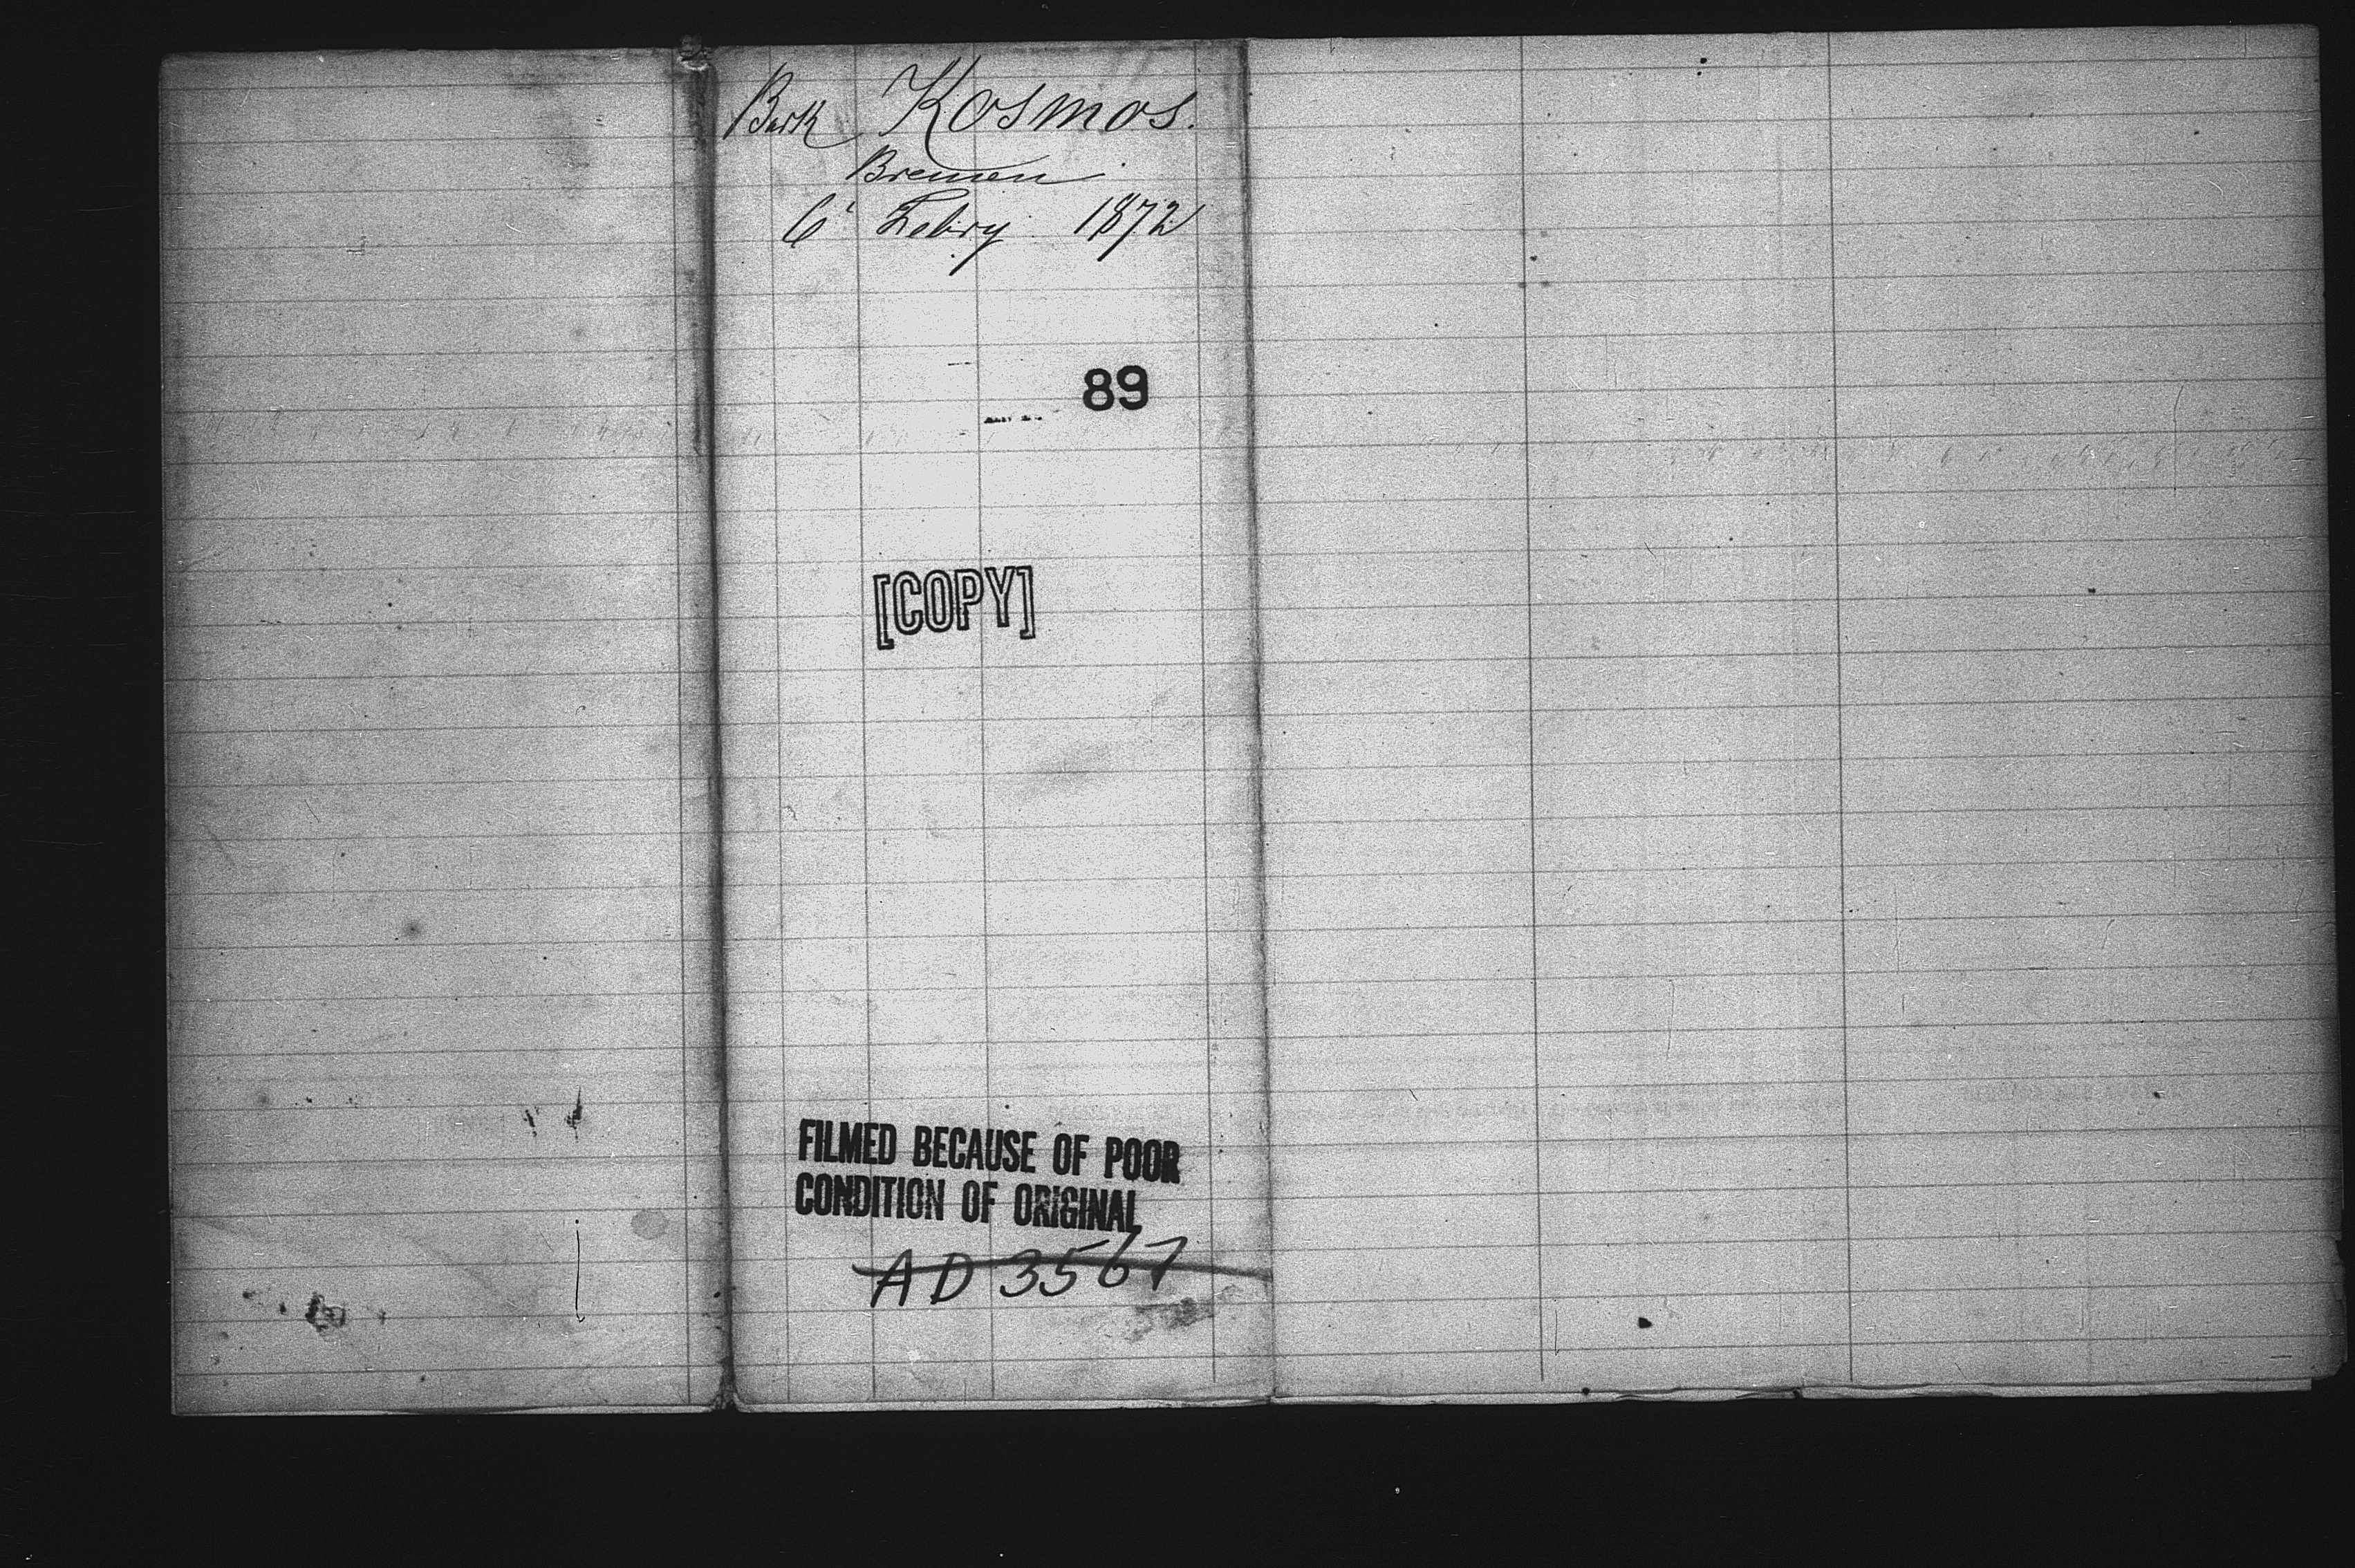 Bark Kosmos.
Bremen
6' Febry 1872
89
[COPY]
FILMED BECAUSE OF POOR
CONDITION OF ORIGINAL
AD 3567